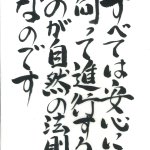 すべては安心に
向って進行する
のが自然の法則
なのです